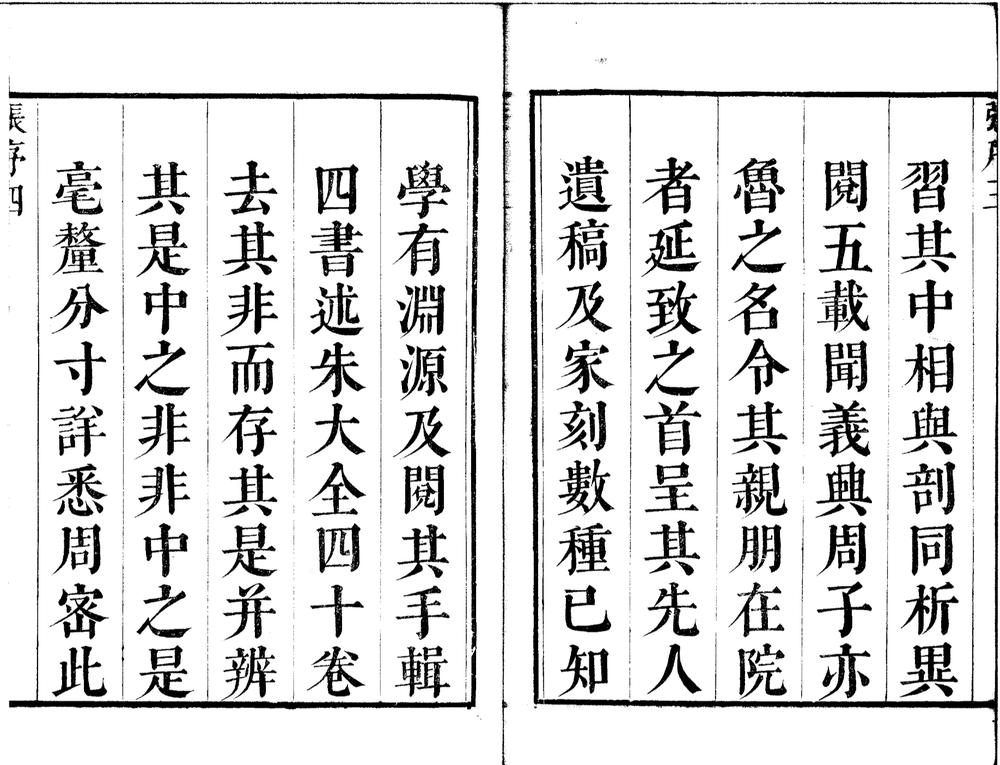 習其中相與剖同析異
閱五載聞義典周子亦
魯之名令其親朋在院
者延致之首呈其先人
遺稿及家刻數種已知
學有淵源及閱其手輯
四書述朱大全四十卷
去其非而存其是并辨
其是中之非非中之是
毫釐分寸詳悉周密此
張序四